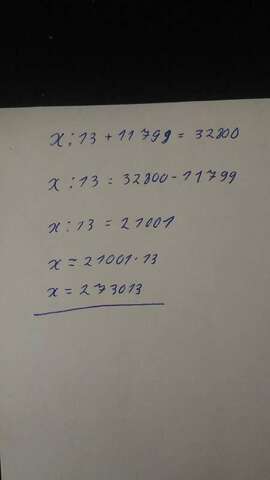 x:13 + 11799 = 32800
x:13 = 32800 - 11799
x:13 = 21001
x = 21001·13
x = 273013